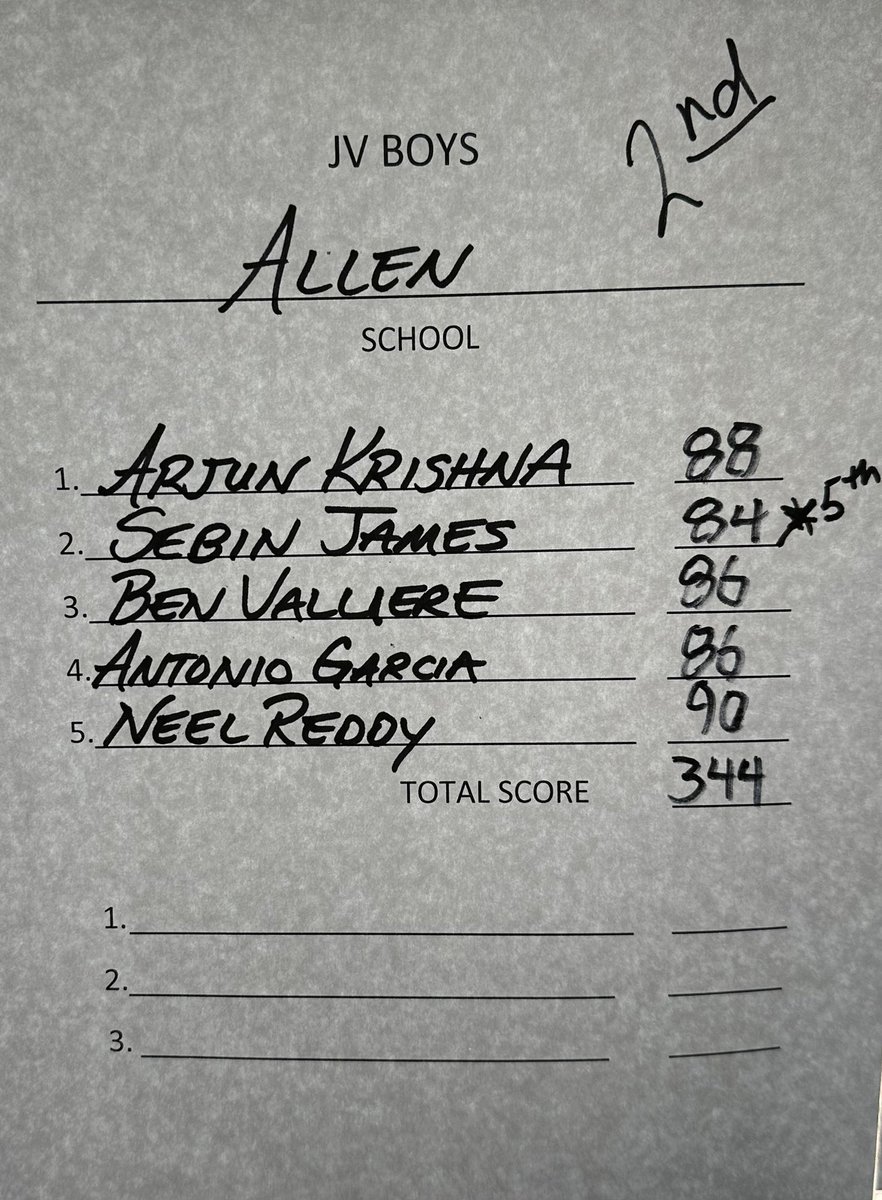 2nd
JV BOYS
ALLEN
SCHOOL
1. ARJUN KRISHNA 88
2. SEBIN JAMES 84 *5th
3. BEN VALLIERE 86
4. ANTONIO GARCIA 86
5. NEEL REDDY 90
TOTAL SCORE 344
1.
2.
3.